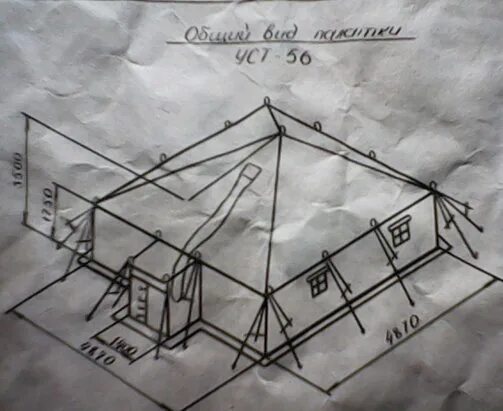 Общий вид палатки
УСТ-56
3500
1750
1400
4870
4870